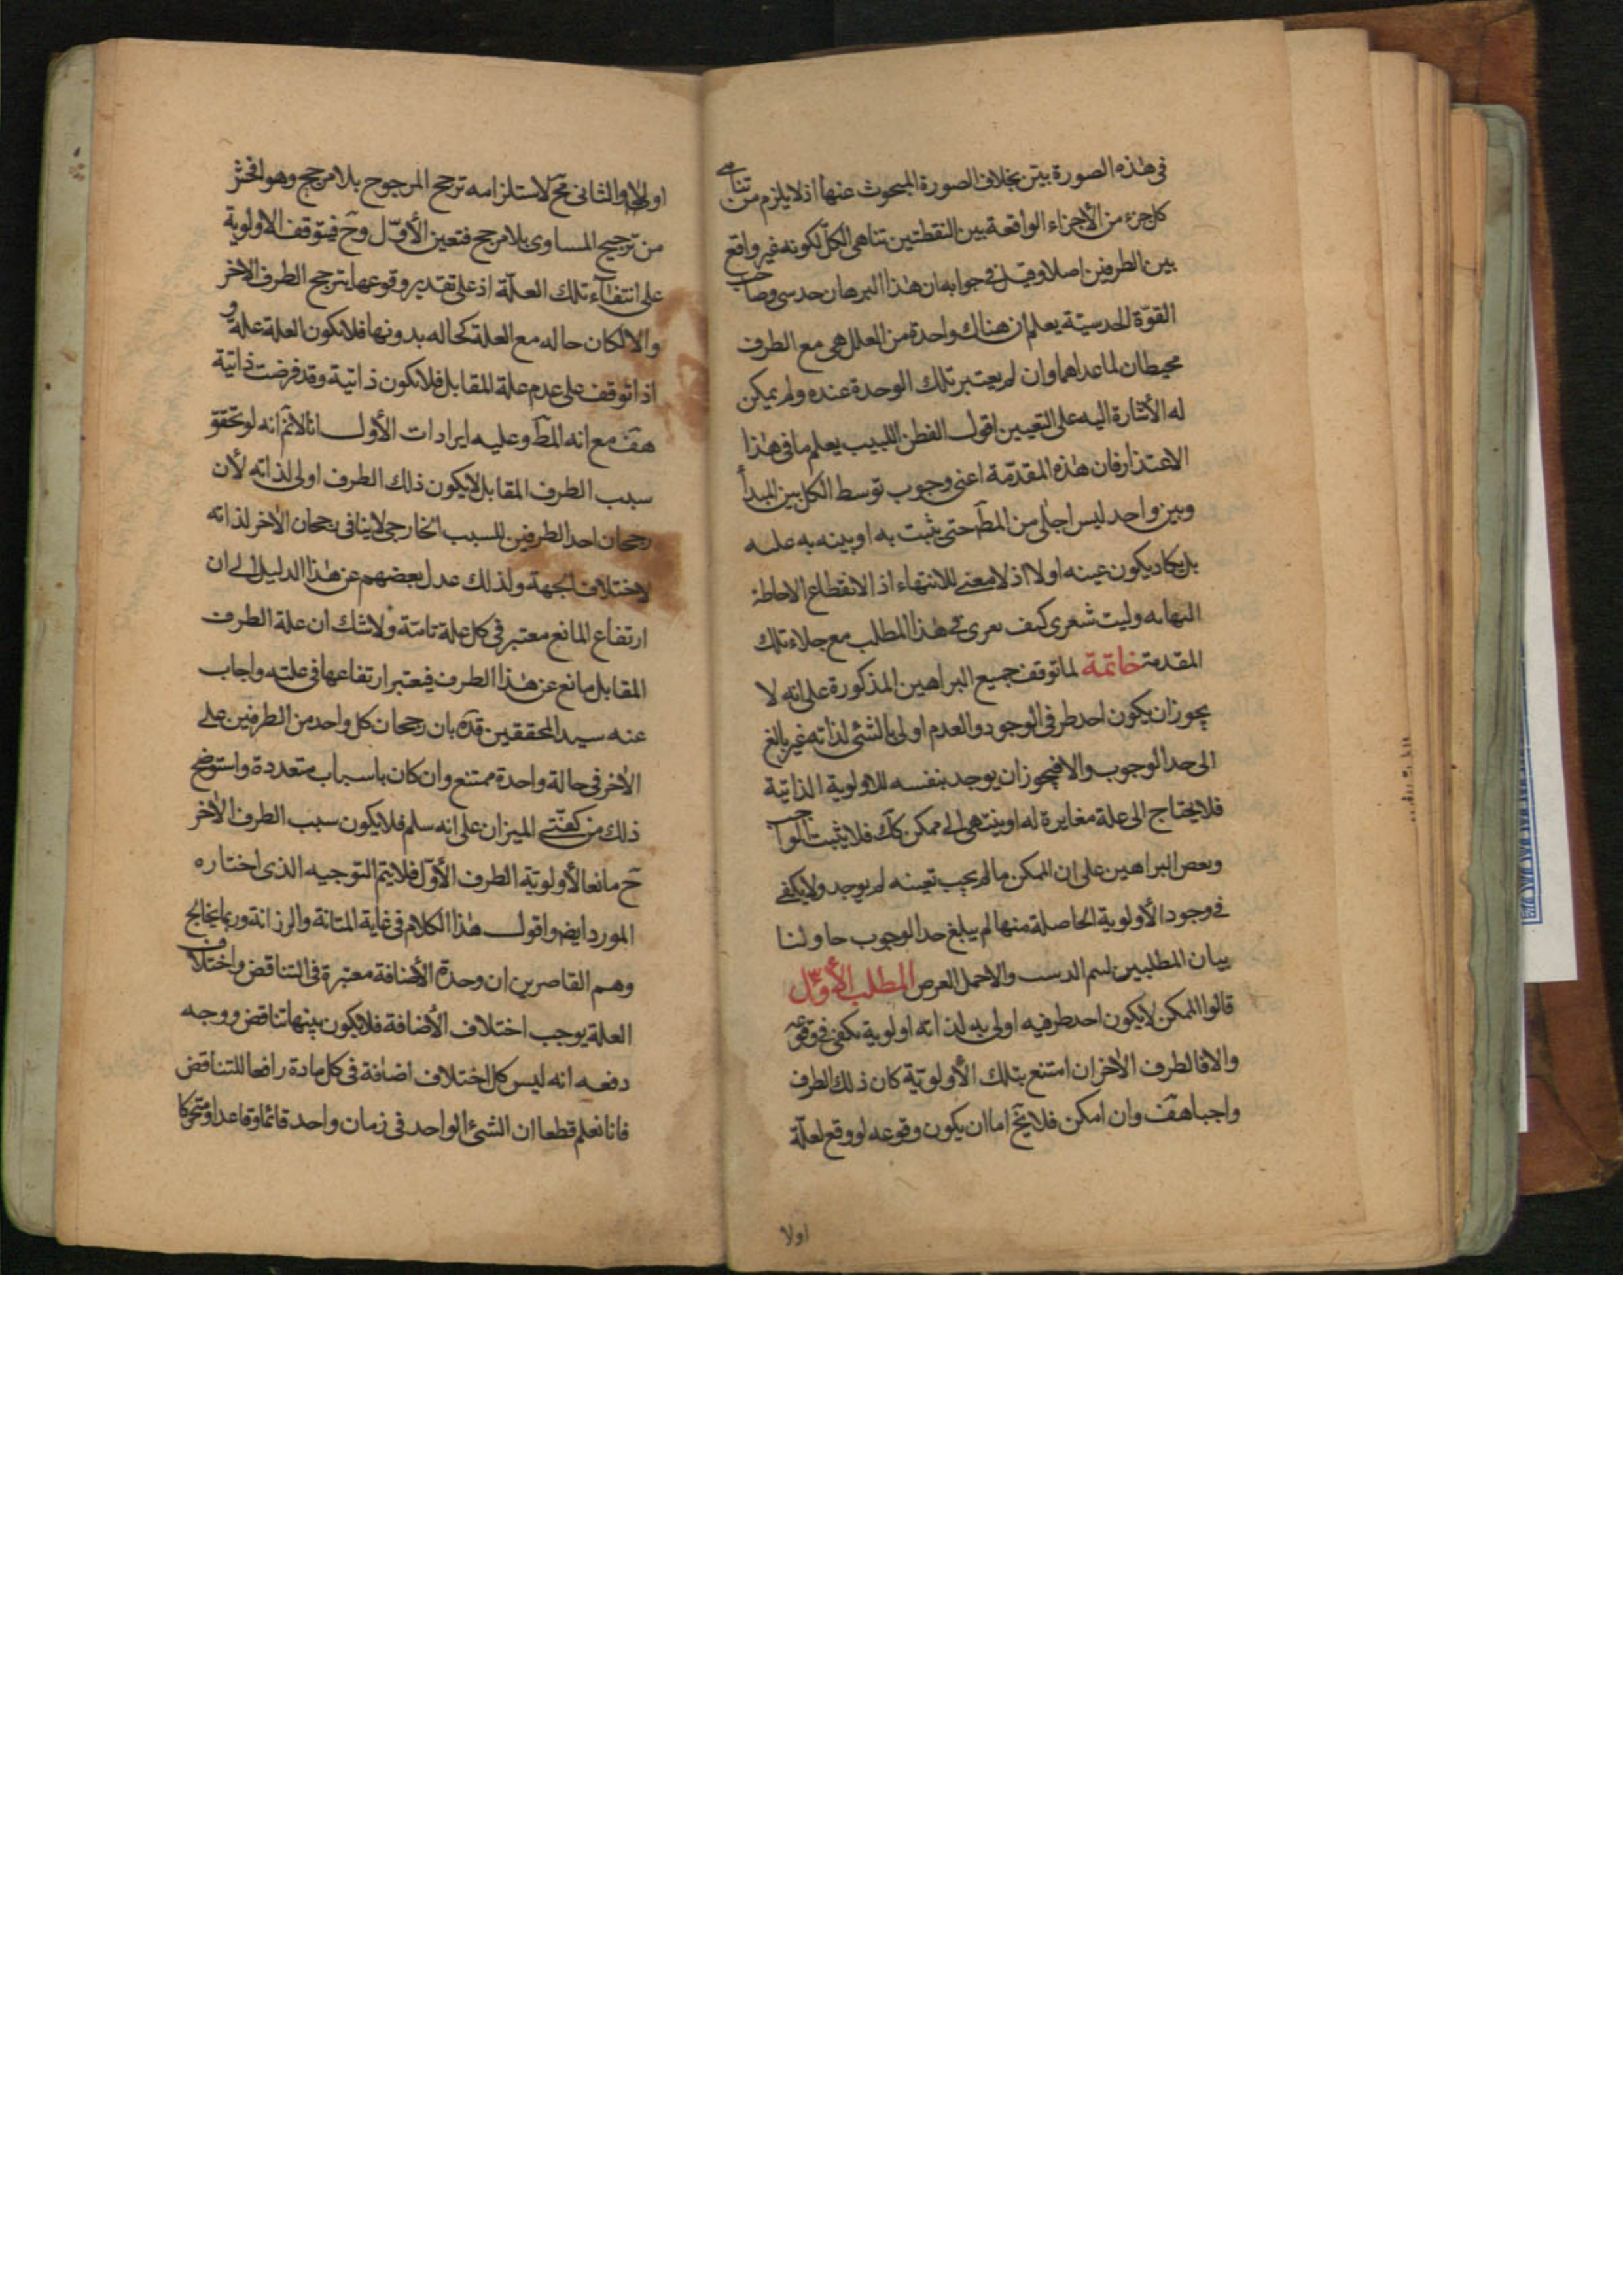 في هذه الصورة بين بخلاف الصورة المبحوث عنها اذ لا يلزم من تناهى
كل جزء من الأجزاء الواقعة بين النقطتين تناهى الكل لكونه غير واقع
بين الطرفين اصلا وقيل في جوابه ان هذا البرهان حدسى وصاحب
القوّة الحدسيّة يعلم ان هناك واحدة من العلل هى مع الطرف
محيطان لما عداهما وان لم يعتبر تلك الوحدة عنده ولم يمكن
له الأشارة اليه على التعيين اقول الفطن اللبيب يعلم ما فى هذا
الاعتذار فان هذه المقدّمة اعنى وجوب توسط الكل بين المبدأ
وبين واحد ليس اجلى من المطآ حتى يثبت به او يبنه به عليه
بل يكاد يكون عينه اولا اذ لا معنى للانتهاء اذ الانقطاع الاحاطة
النهايه وليت شعرى كيف يعرى فى هذا المطلب مع جلاء تلك
المقدمة خاتمة لما توقف جميع البراهين المذكورة على انه لا
يجوز ان يكون احد طرفى الوجود والعدم اولى بالشئ لذاته غير بالغ
الى حد الوجوب والا فيجوز ان يوجد بنفسه للاولوية الذاتيّة
فلا يحتاج الى علة مغايرة له او ينتهى الى ممكن كآك فلا يثبت الواجب
وبعض البراهين على ان الممكن ما لم يجب تعينه لم يوجد ولا يكفى
فى وجود الأولوية الحاصلة منها لم يبلغ حد الوجوب حاولنا
بيان المطلبين المطلب الأوّل
قالوا الممكن لا يكون احد طرفيه اولى به لذاته اولوية تكفى فى وقوعه
والا فالطرف الأخر ان امتنع بتلك الأولويّة كان ذلك الطرف
واجبا هف وان امكن فلا يخ اما ان يكون وقوعه لو وقع لعلّة
اولا
اولا والثانى مح لاستلزامه ترجح المرجوح بلا مرجح وهو افحش
من ترجيح المساوى بلا مرجح فتعين الأوّل وح فيتوقف الاولوية
على انتفاء تلك العلّة اذ على تقدير وقوعها يترجح الطرف الاخر
والا لكان حاله مع العلة كحاله بدونها فلا تكون العلة علة و
اذا توقف على عدم علة المقابل فلا تكون ذاتية وقد فرضت ذاتية
هف مع انه المطآ وعليه ايرادات الأول انا لا نم انه لو تحقق
سبب الطرف المقابل لا يكون ذلك الطرف اولى لذاته لأن
رجحان احد الطرفين للسبب الخارجى لا ينافى رجحان الأخر لذاته
لاختلاف الجهة ولذلك عدل بعضهم عن هذا الدليل الى ان
ارتفاع المانع معتبر فى كل علة تامّة ولا شك ان علة الطرف
المقابل مانع عن هذا الطرف فيعتبر ارتفاعها فى علته واجاب
عنه سيد المحققين قده بان رجحان كل واحد من الطرفين على
الأخر فى حالة واحدة ممتنع وان كان باسباب متعددة واستوضح
ذلك من كفتى الميزان على انه سلم فلا يكون سبب الطرف الأخر
ح مانعا لأولويّة الطرف الأوّل فلا يتم التوجيه الذى اختاره
المورد ايضه واقول هذا الكلام فى غاية المتانة والرزانة وربما يخالج
وهم القاصرين ان وحدة الأضافة معتبرة فى التناقض واختلاف
العلة يوجب اختلاف الأضافة فلا يكون بينها تناقض ووجه
دفعه انه ليس كل اختلاف اضافة فى كل مادة رافعا للتناقض
فانا نعلم قطعا ان الشئ الواحد فى زمان واحد قائما وقاعدا او متحركا